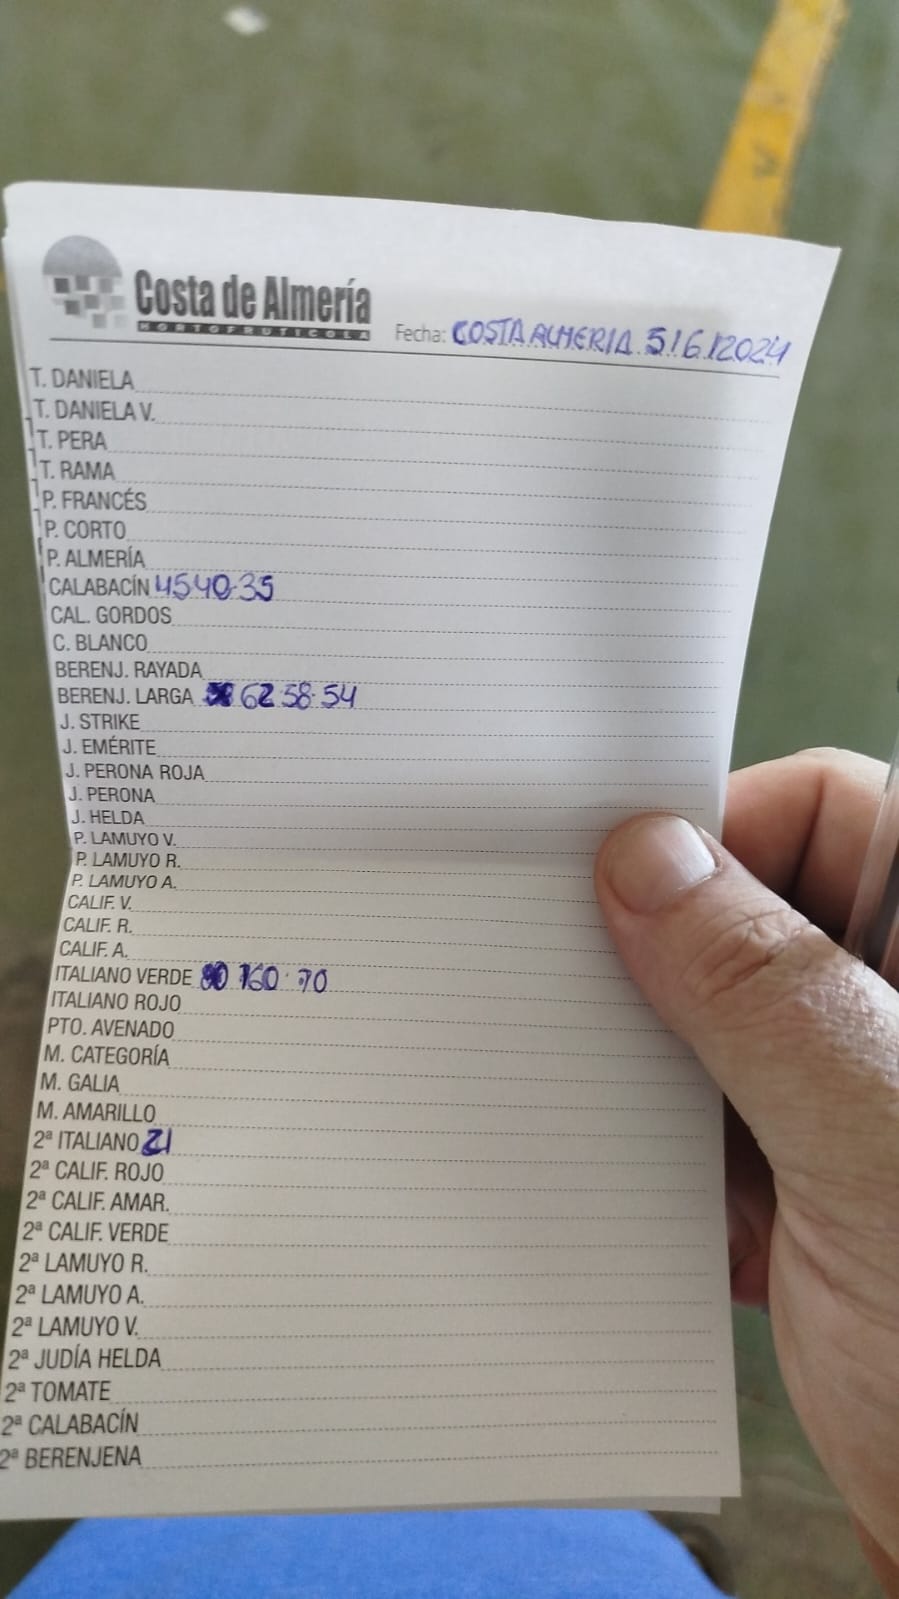 Costa de Almería
HORTOFRUTICOLA
Fecha: COSTA ALMERIA 5/6/2024
T. DANIELA
T. DANIELA V.
T. PERA
T. RAMA
P. FRANCÉS
P. CORTO
P. ALMERÍA
CALABACÍN 45 40 35
CAL. GORDOS
C. BLANCO
BERENJ. RAYADA
BERENJ. LARGA 62 58 54
J. STRIKE
J. EMÉRITE
J. PERONA ROJA
J. PERONA
J. HELDA
P. LAMUYO V.
P. LAMUYO R.
P. LAMUYO A.
CALIF. V.
CALIF. R.
CALIF. A.
ITALIANO VERDE 70
ITALIANO ROJO
PTO. AVENADO
M. CATEGORÍA
M. GALIA
M. AMARILLO
2ª ITALIANO 21
2ª CALIF. ROJO
2ª CALIF. AMAR.
2ª CALIF. VERDE
2ª LAMUYO R.
2ª LAMUYO A.
2ª LAMUYO V.
2ª JUDÍA HELDA
2ª TOMATE
2ª CALABACÍN
2ª BERENJENA